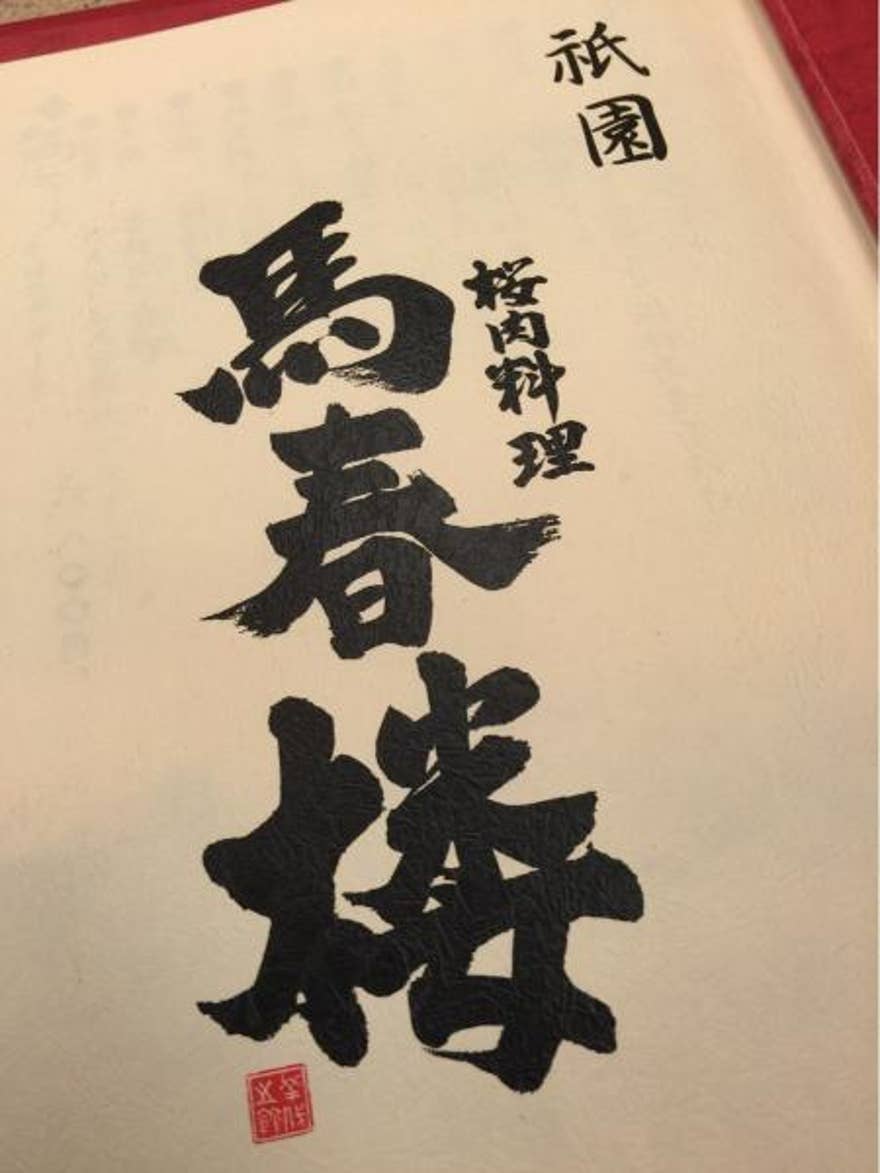 祇園
桜肉料理
馬春楼